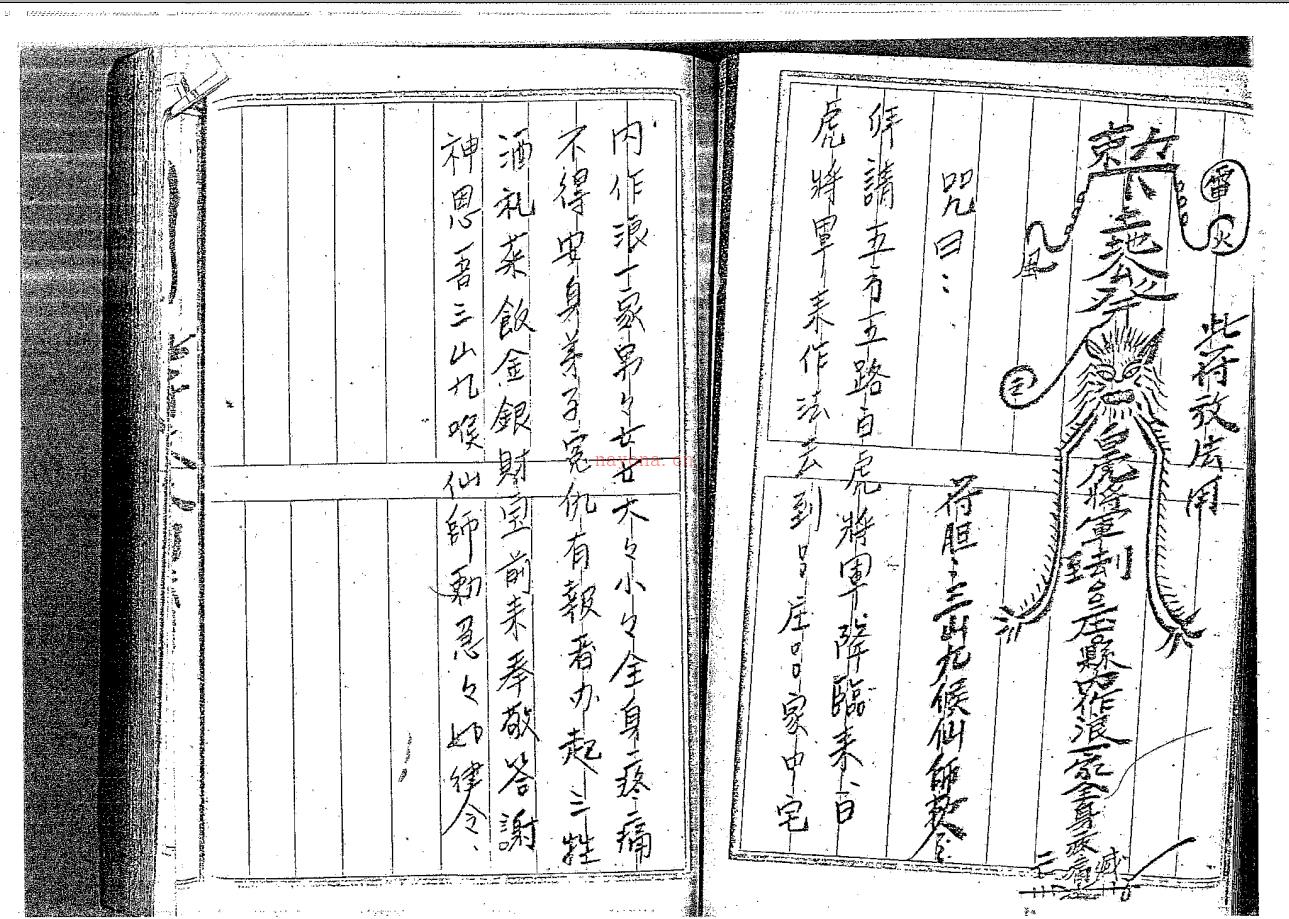 此符放法用
雷火
風
皇虎將軍去到呂庄呂縣內作浪一家全身
符胆:三山九候仙師敕令:
咒曰:
拜請五方五路白虎將軍降臨来、白
虎將軍来作法去到呂庄呂家中宅
内作浪一家男々女女大々小々全身疼痛
不得安身弟子寃仇有報著办起三牲
酒礼菜飯金銀財宝前来奉敬答謝
神恩吾三山九喉仙師勅急々如律令、
nayona.cn